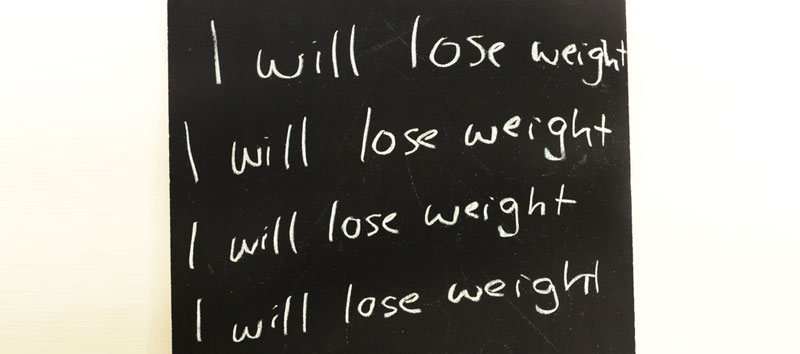 I will lose weight
I will lose weight
I will lose weight
I will lose weight